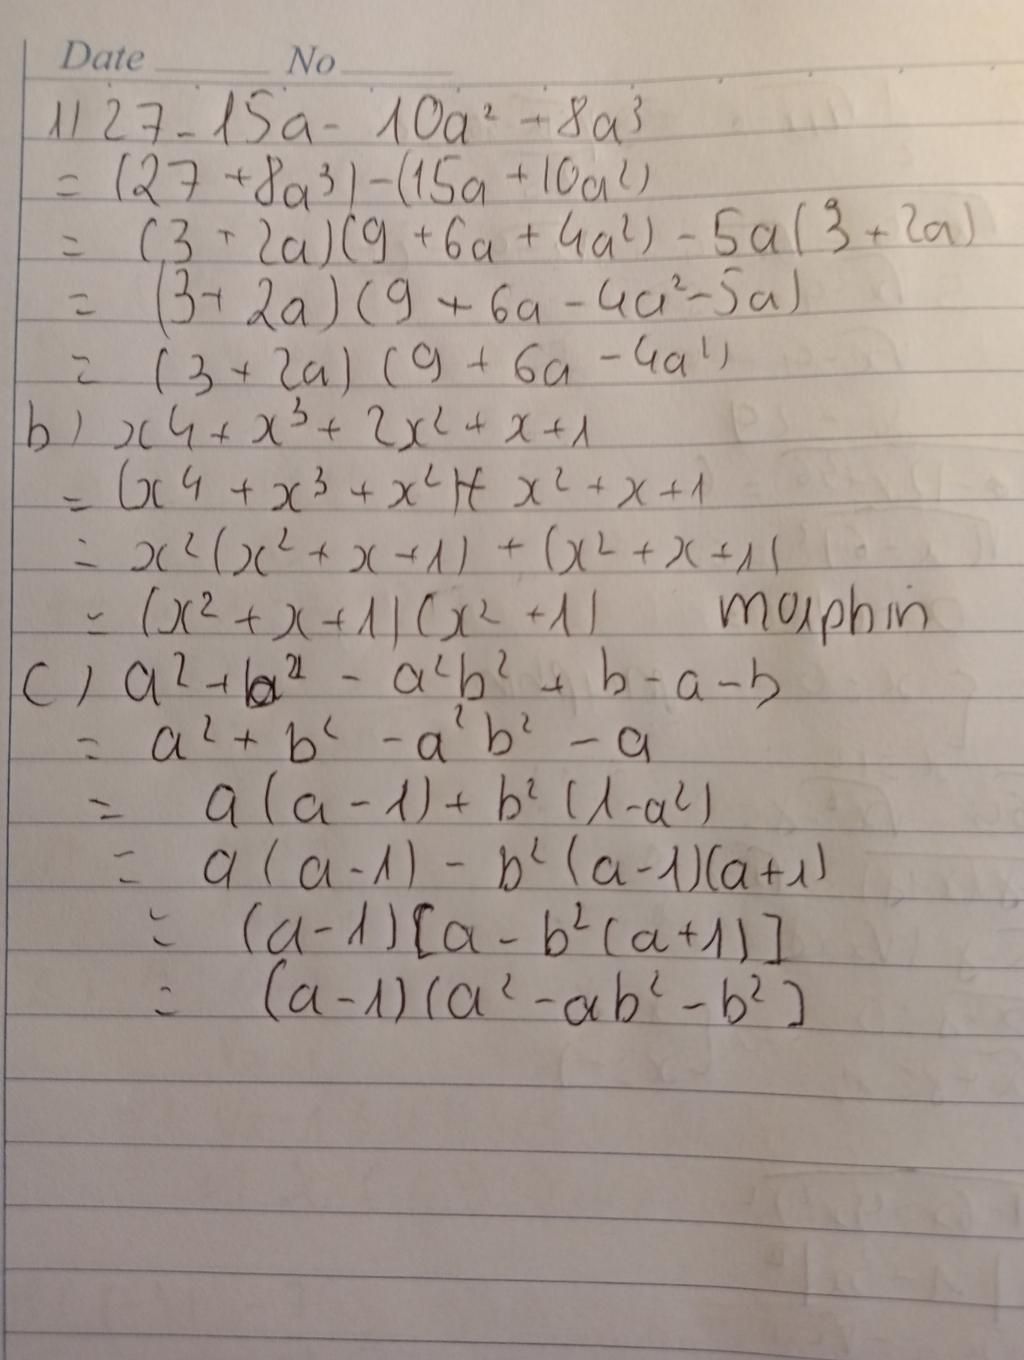 Date No
1) 27 - 15a - 10a² + 8a³
= (27 + 8a³) - (15a + 10a²)
= (3 + 2a)(9 + 6a + 4a²) - 5a(3 + 2a)
= (3 + 2a)(9 + 6a - 4a² - 5a)
= (3 + 2a)(9 + 6a - 4a²)
b) x4 + x³ + 2x² + x + 1
= (x4 + x³ + x²)+ x² + x + 1
= x²(x² + x + 1) + (x² + x + 1)
= (x² + x + 1)(x² + 1) morphin
c) a² + b² - a²b² + b - a - b
= a² + b² - a²b² - a
= a(a - 1) + b²(1 - a²)
= a(a - 1) - b²(a - 1)(a + 1)
= (a - 1)[a - b²(a + 1)]
= (a - 1)(a² - ab² - b²]